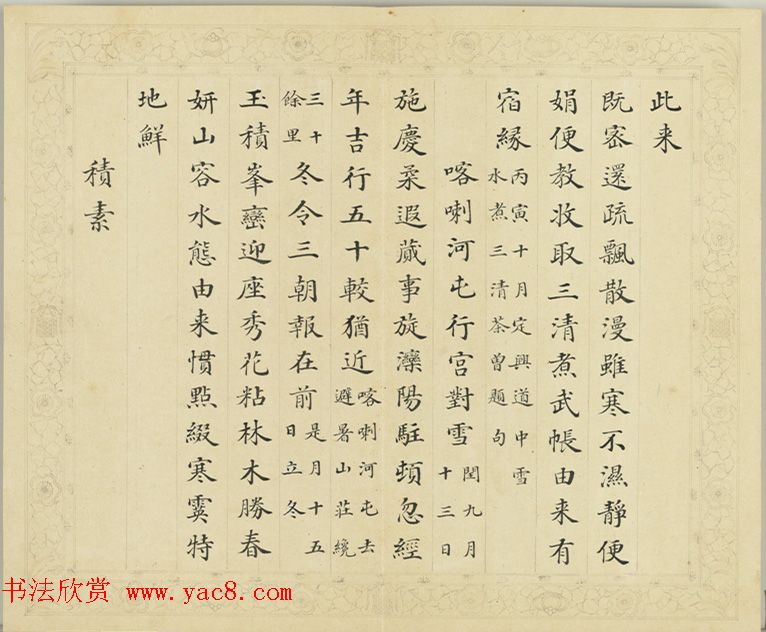 此来
既密還疏飄散漫雖寒不濕靜便
娟便教收取三清煮武帳由来有
宿縁丙寅十月定興道中雪水煮三清茶曾題句
喀喇河屯行宮對雪閏九月十三日
施慶柔遐蕆事旋灤陽駐頓忽經
年吉行五十較猶近喀喇河屯去避暑山莊纔
三十餘里冬令三朝報在前是月十五日立冬
玉積峯巒迎座秀花粘林木勝春
妍山容水態由来慣點綴寒霙特
地鮮
積素
书法欣赏 www.yac8.com